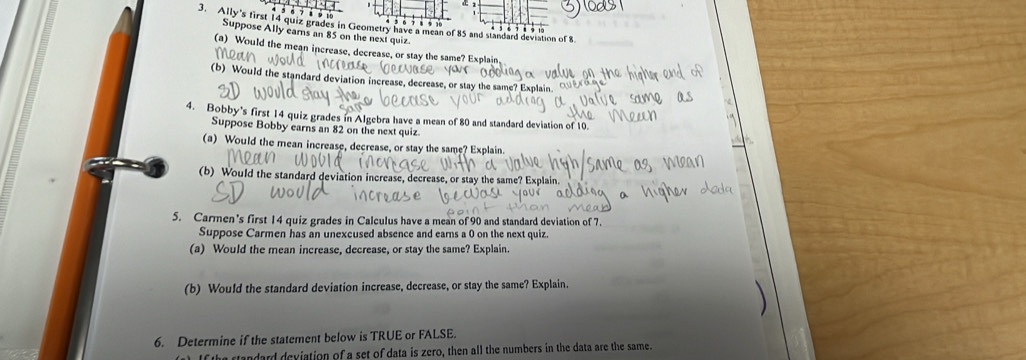 3) lods
4 5 6 7 8 9 10
4 5 6 7 8 9 10
4 5 6 7 8 9 10
3. Ally's first 14 quiz grades in Geometry have a mean of 85 and standard deviation of 8.
Suppose Ally earns an 85 on the next quiz.
(a) Would the mean increase, decrease, or stay the same? Explain.
mean would increase because your adding a value on the higher end of average
(b) Would the standard deviation increase, decrease, or stay the same? Explain.
SD would stay the same because your adding a value same as the mean
4. Bobby's first 14 quiz grades in Algebra have a mean of 80 and standard deviation of 10.
Suppose Bobby earns an 82 on the next quiz.
(a) Would the mean increase, decrease, or stay the same? Explain.
mean would increase with a value high/same as mean
(b) Would the standard deviation increase, decrease, or stay the same? Explain.
SD would increase because your adding a higher data
point than mean
5. Carmen's first 14 quiz grades in Calculus have a mean of 90 and standard deviation of 7.
Suppose Carmen has an unexcused absence and earns a 0 on the next quiz.
(a) Would the mean increase, decrease, or stay the same? Explain.
(b) Would the standard deviation increase, decrease, or stay the same? Explain.
6. Determine if the statement below is TRUE or FALSE.
(a) If the standard deviation of a set of data is zero, then all the numbers in the data are the same.